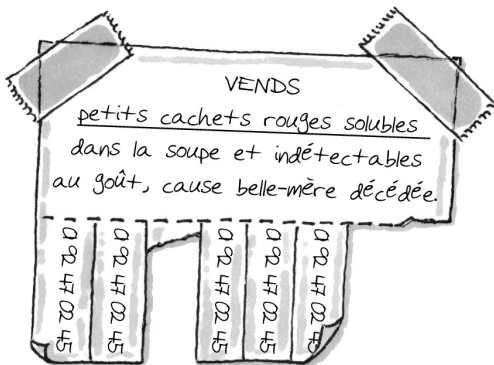 VENDS
petits cachets rouges solubles
dans la soupe et indétectables
au goût, cause belle-mère décédée.
0 92 47 02 45
0 92 47 02 45
0 92 47 02 45
0 92 47 02 45
0 92 47 02 45